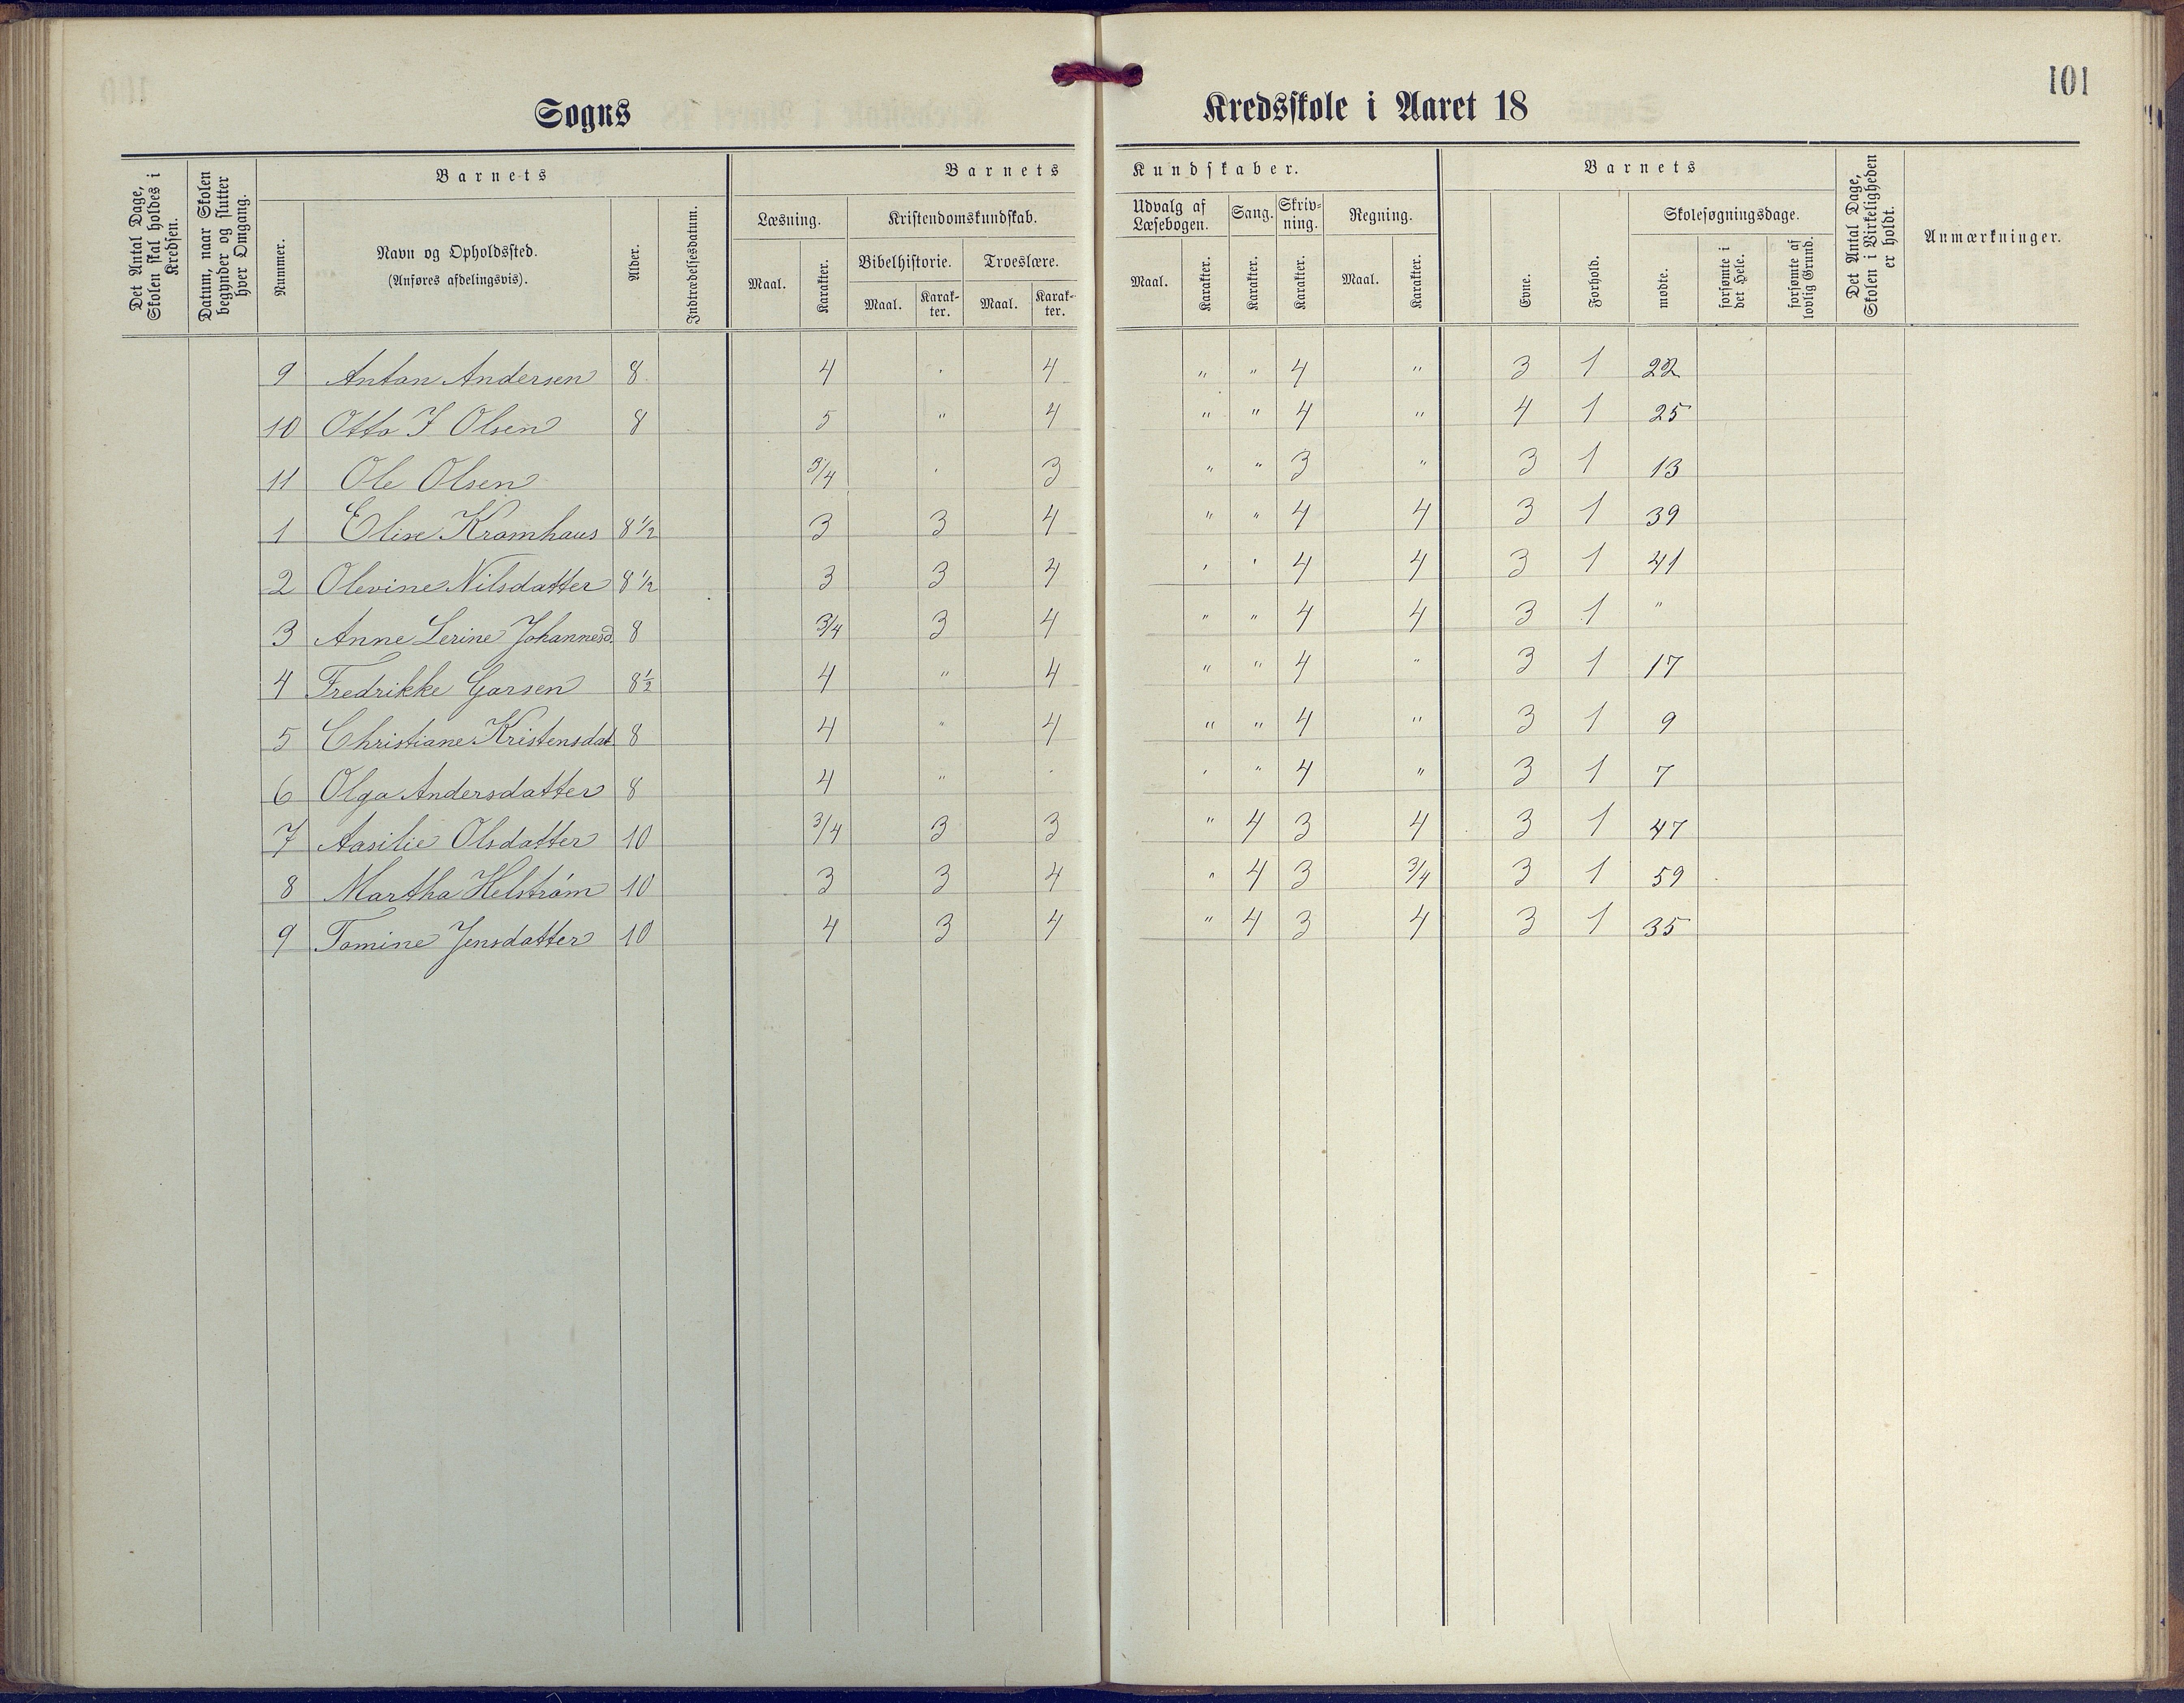 101
Sogns Kredsskole i Aaret 18
Det Antal Dage, Skolen skal holdes i Kredsen.
Datum, naar Skolen begynder og slutter hver Omgang.
Barnets
Nummer.
Navn og Opholdssted.
(Anføres afdelingsvis).
Alder.
Indtrædelsesdatum.
Barnets Kundskaber.
Læsning.
Maal.
Karakter.
Kristendomskundskab.
Bibelhistorie.
Maal.
Karakter.
Troeslære.
Maal.
Karakter.
Udvalg af Læsebogen.
Maal.
Karakter.
Sang.
Karakter.
Skrivning.
Karakter.
Regning.
Maal.
Karakter.
Barnets
Evne.
Forhold.
Skolesøgningsdage.
mødte.
forsømte i det Hele.
forsømte af lovlig Grund.
Det Antal Dage, Skolen i Virkeligheden er holdt.
Anmærkninger.
9 Anton Andersen 8 4 " 4 " " 4 " 3 1 22
10 Otto J Olsen 8 5 " 4 " " 4 " 4 1 25
11 Ole Olsen 3/4 " 3 " " 3 " 3 1 13
1 Elise Kromhaus 8 1/2 3 3 4 " " 4 4 3 1 39
2 Olevine Nilsdatter 8 1/2 3 3 4 " " 4 4 3 1 41
3 Anne Lerine Johannesd. 8 3/4 3 4 " " 4 4 3 1 "
4 Fredrikke Garsen 8 1/2 4 " 4 " " 4 " 3 1 17
5 Christiane Kristensdat 8 4 " 4 " " 4 " 3 1 9
6 Olga Andersdatter 8 4 " " " " 4 " 3 1 7
7 Aasilie Olsdatter 10 3/4 3 3 " 4 3 4 3 1 47
8 Martha Helstrøm 10 3 3 4 " 4 3 3/4 3 1 59
9 Tomine Jensdatter 10 4 3 4 " 4 3 4 3 1 35